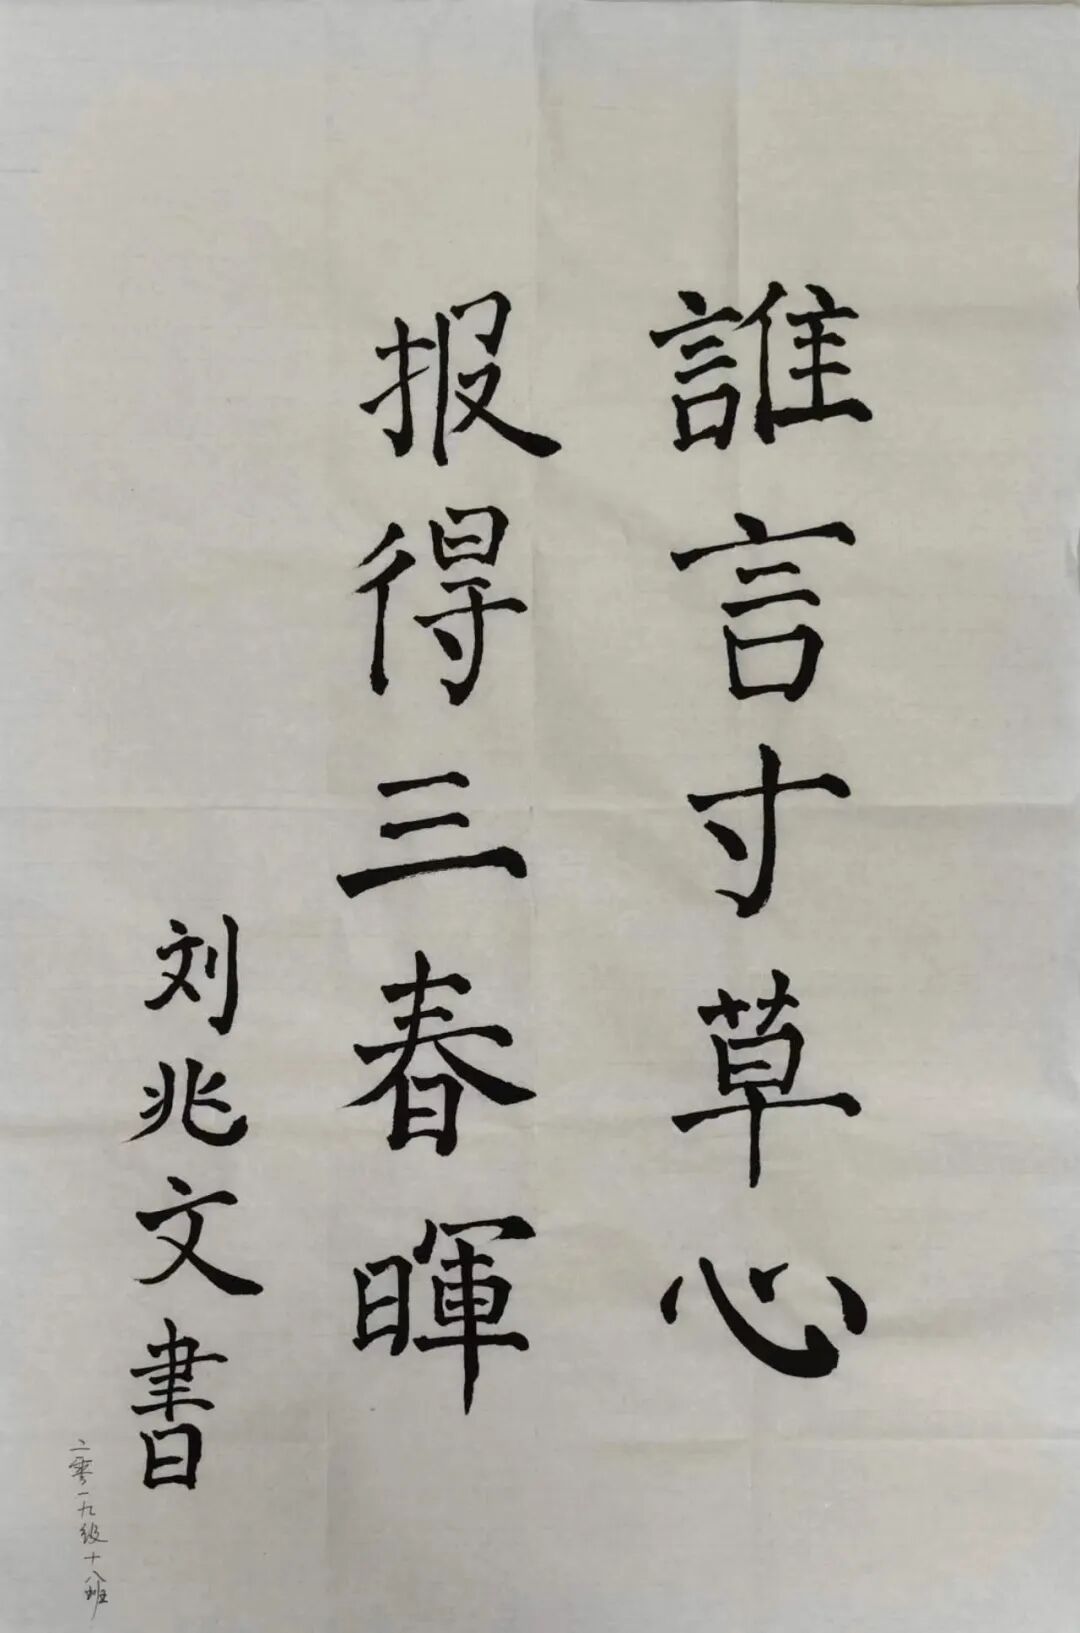 誰言寸草心
报得三春暉
刘兆文書
二零一九级十八班